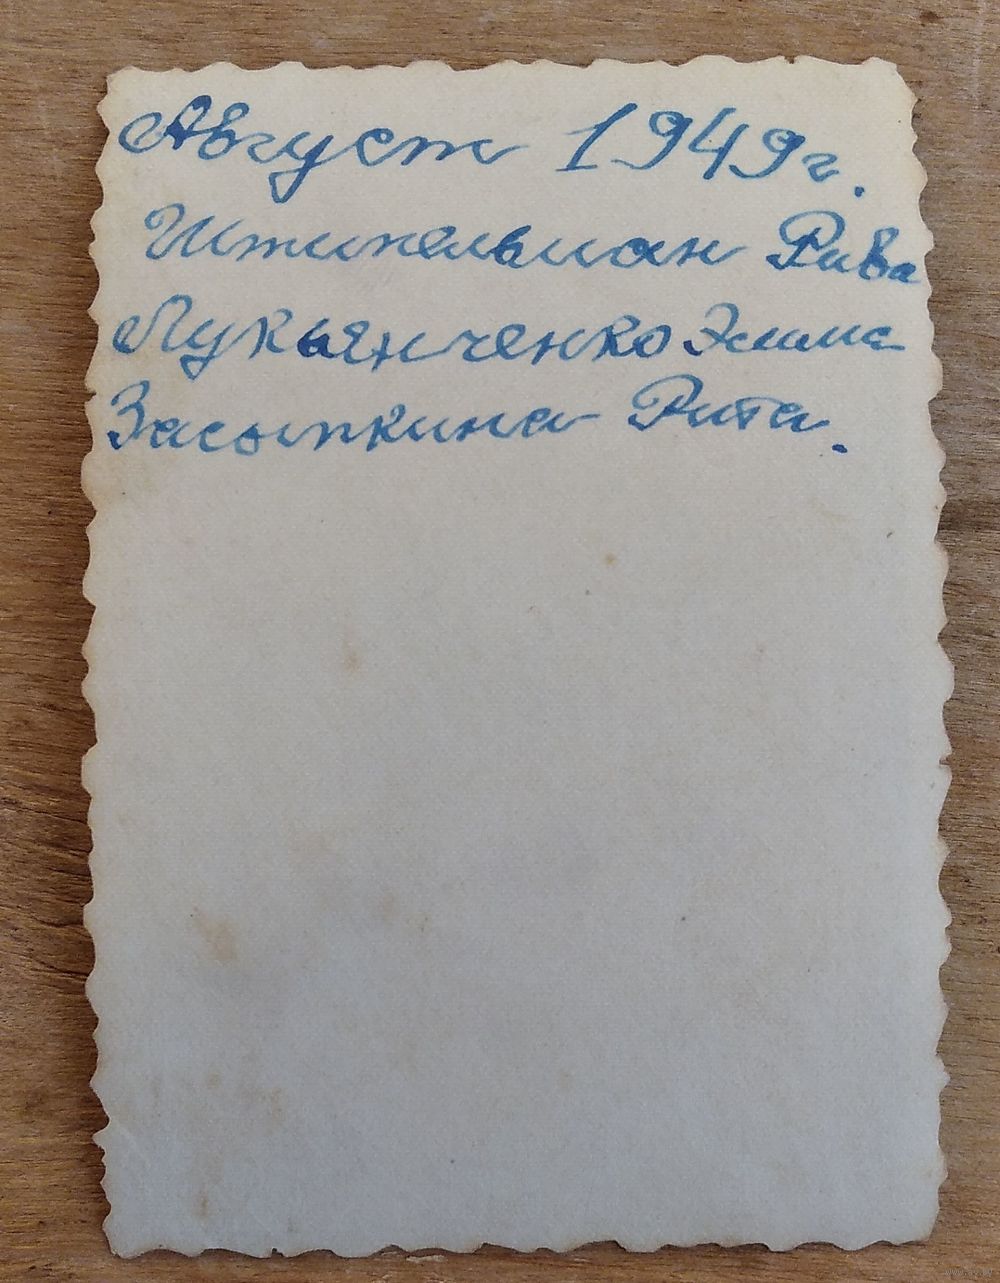 Август 1949г.
Штипельман Рива
Лукьянченко Эмма
Засыпкина Рита.